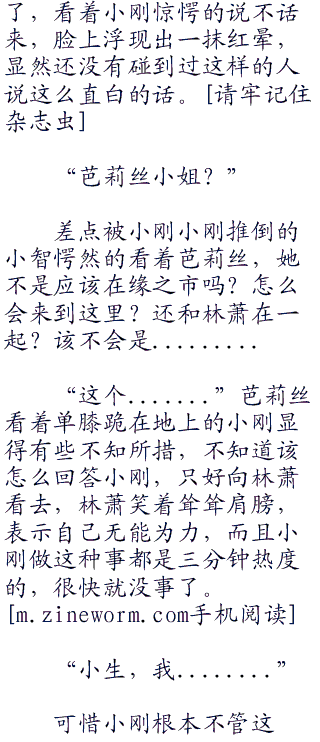 了，看着小刚惊愕的说不话
来，脸上浮现出一抹红晕，
显然还没有碰到过这样的人
说这么直白的话。[请牢记住
杂志虫]
“芭莉丝小姐？”
差点被小刚小刚推倒的
小智愕然的看着芭莉丝，她
不是应该在缘之市吗？怎么
会来到这里？还和林萧在一
起？该不会是.........
“这个.......”芭莉丝
看着单膝跪在地上的小刚显
得有些不知所措，不知道该
怎么回答小刚，只好向林萧
看去，林萧笑着耸耸肩膀，
表示自己无能为力，而且小
刚做这种事都是三分钟热度
的，很快就没事了。
[m.zineworm.com手机阅读]
“小生，我........”
可惜小刚根本不管这